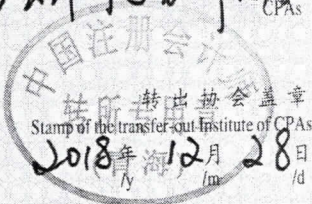 CPAs
中国注册会计师
转所专用章
转出协会盖章
Stamp of the transfer-out Institute of CPAs
2018年 12月 28日
/y /m /d